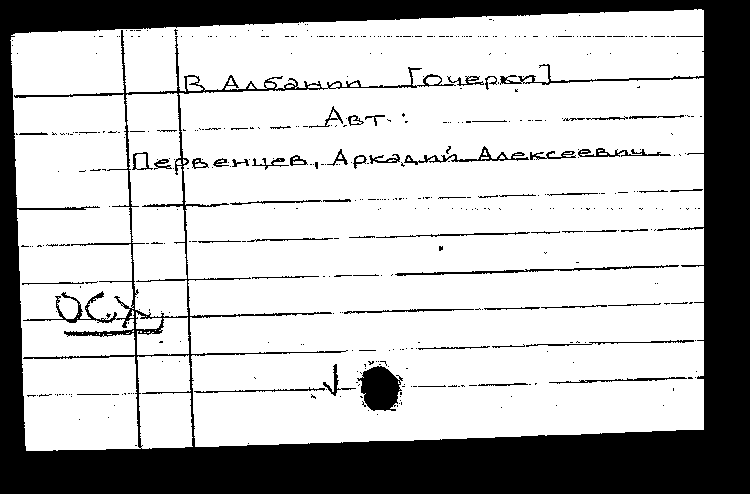 В Албании. [очерки]
Авт.:
Первенцев, Аркадий Алексеевич.
ОСХ